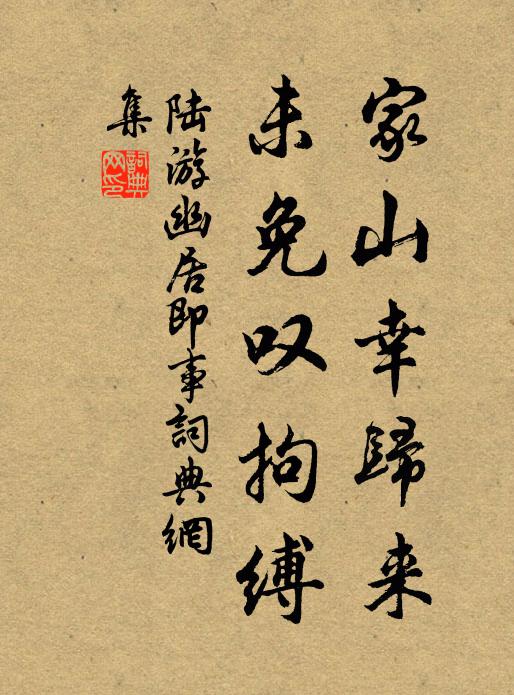 家山幸歸来
未免叹拘缚
陆游幽居即事詞典網
集
詞典网印